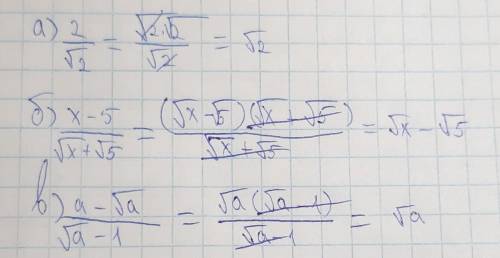 а) 2/√2 = √2·√2/√2 = √2
б) x-5/√x+√5 = (√x-√5)(√x+√5)/√x+√5 = √x-√5
в) a-√a/√a-1 = √a(√a-1)/√a-1 = √a